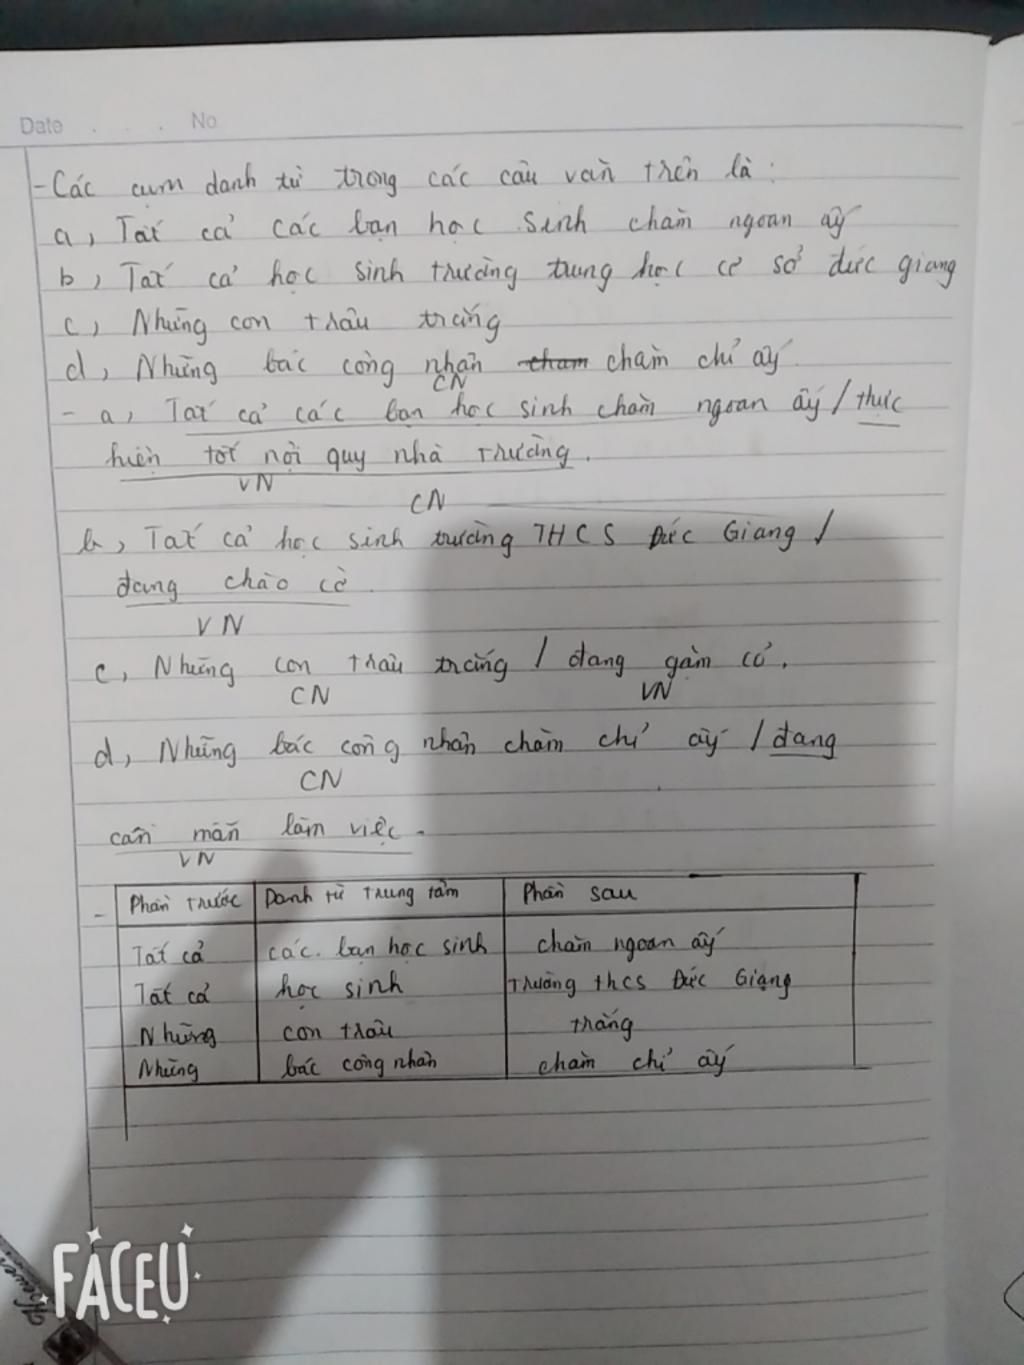 Date . . . No
- Các cụm danh từ trong các câu văn trên là:
a, Tất cả các bạn học sinh chăm ngoan ấy
b, Tất cả học sinh trường trung học cơ sở đức giang
c, Những con trâu trắng
d, Những bác công nhân cham chăm chỉ ấy
CN
- a, Tất cả các bạn học sinh chăm ngoan ấy / thực
hiện tốt nội quy nhà trường.
VN
CN
b, Tất cả học sinh trường THCS Đức Giang /
đang chào cờ.
VN
c, Những con trâu trắng / đang gặm cỏ.
CN VN
d, Những bác công nhân chăm chỉ ấy / đang
CN
cần mẫn làm việc.
VN
- Phần trước Danh từ trung tâm Phần sau
Tất cả các bạn học sinh chăm ngoan ấy
Tất cả học sinh trường thcs Đức Giang
Những con trâu trắng
Những bác công nhân chăm chỉ ấy
FACEU